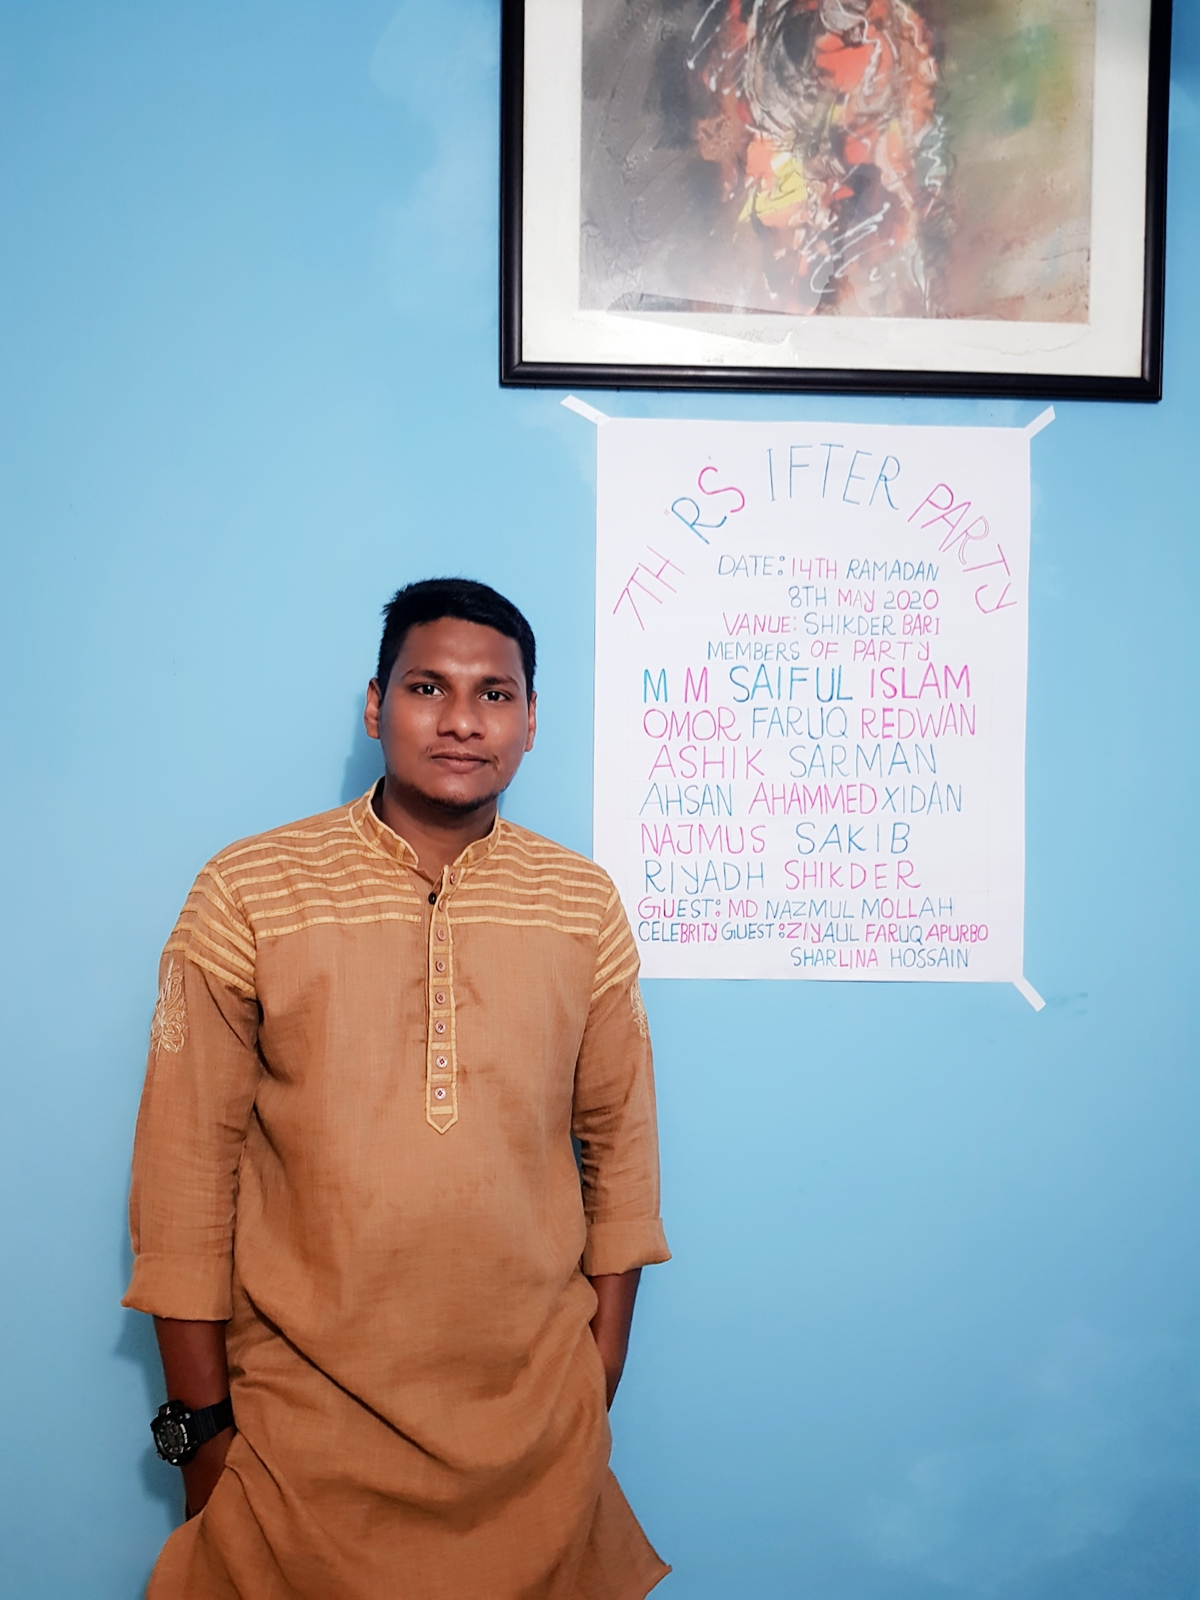 7TH RS IFTER PARTY
DATE: 14TH RAMADAN
8TH MAY 2020
VANUE: SHIKDER BARI
MEMBERS OF PARTY
M M SAIFUL ISLAM
OMOR FARUQ REDWAN
ASHIK SARMAN
AHSAN AHAMMED XIDAN
NAJMUS SAKIB
RIYADH SHIKDER
GUEST: MD NAZMUL MOLLAH
CELEBRITY GUEST: ZIYAUL FARUQ APURBO
SHARLINA HOSSAIN